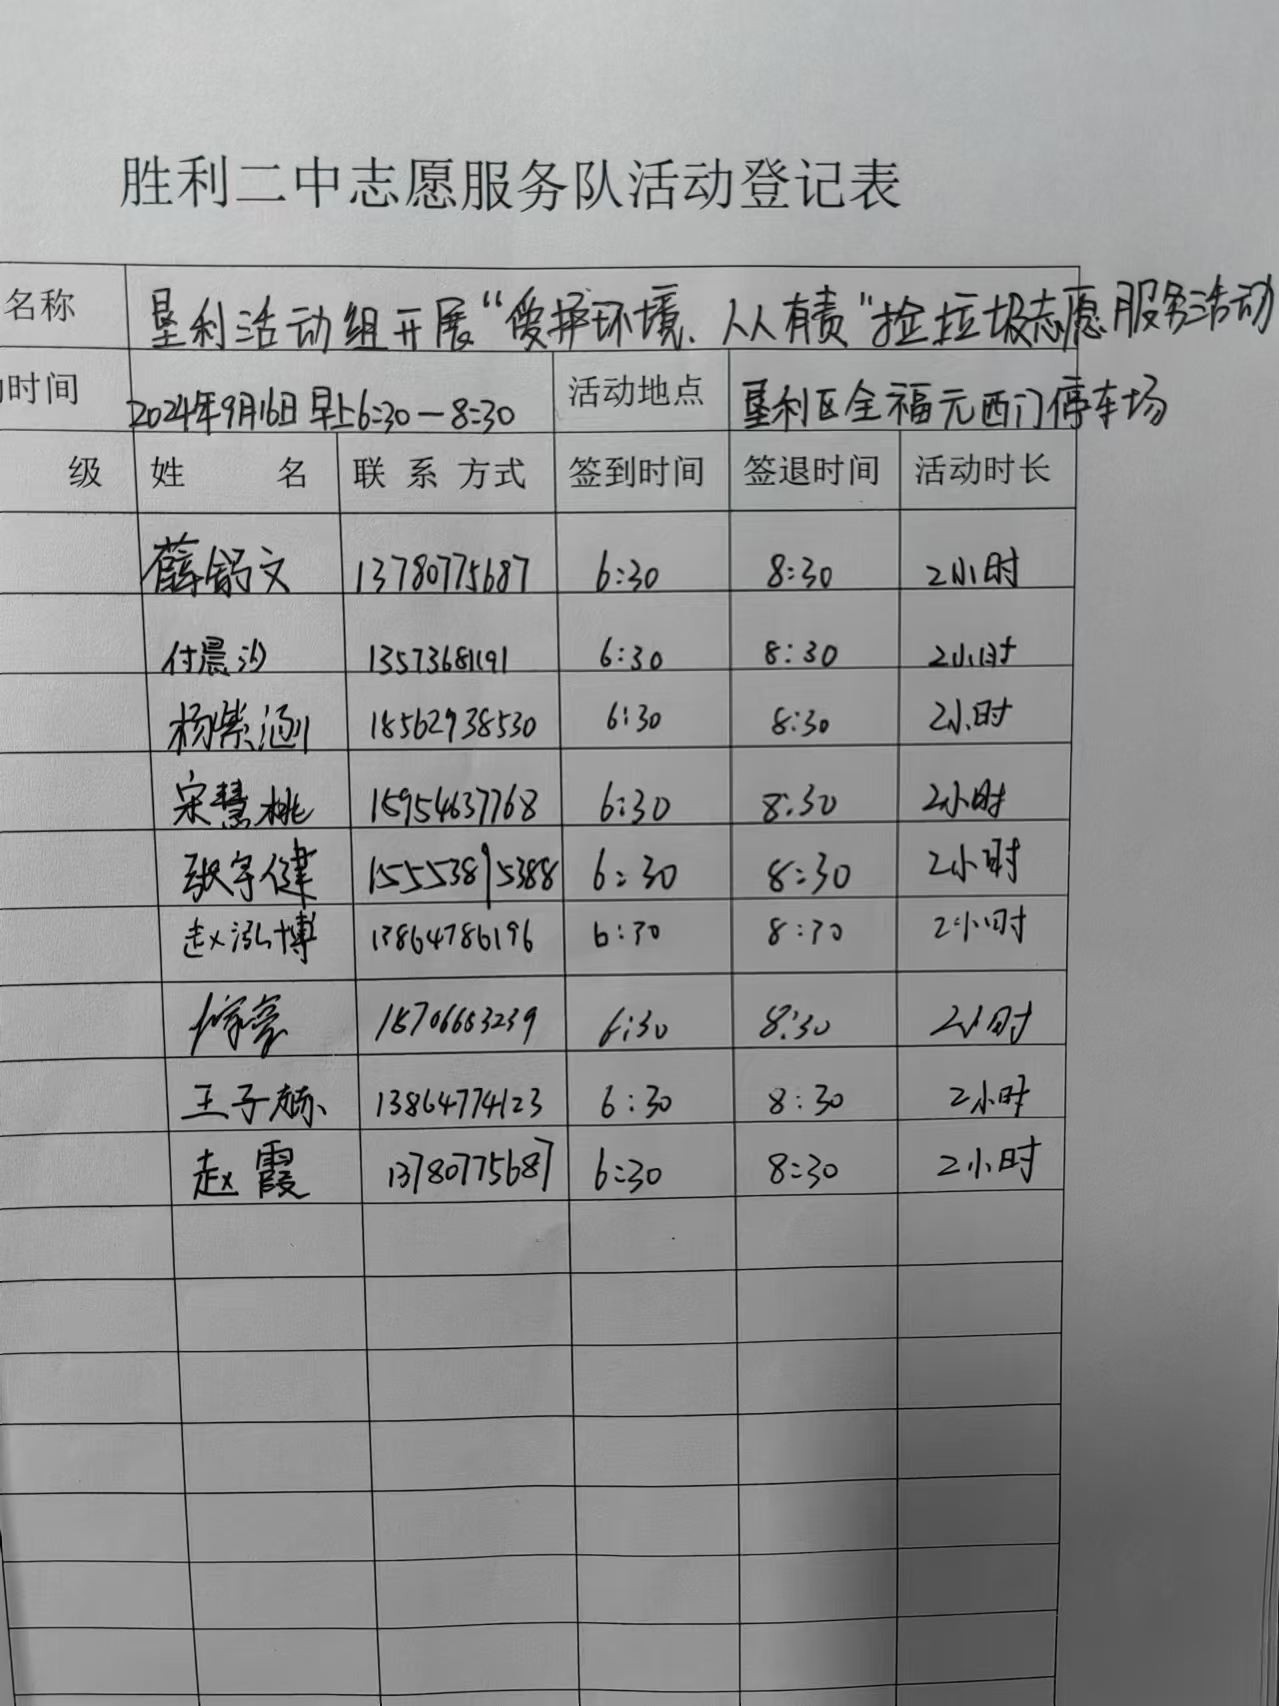 胜利二中志愿服务队活动登记表
名称 垦利活动组开展“爱护环境、人人有责”捡垃圾志愿服务活动
时间 2024年9月16日早上6:30—8:30 活动地点 垦利区全福元西门停车场
级 姓 名 联系方式 签到时间 签退时间 活动时长
薛舒文 13780775687 6:30 8:30 2小时
付晨汐 13573681191 6:30 8:30 2小时
杨紫涵 18562938530 6:30 8:30 2小时
宋慧桃 15954637768 6:30 8:30 2小时
张宇健 15553895388 6:30 8:30 2小时
赵泓博 13864786196 6:30 8:30 2小时
18706663239 6:30 8:30 2小时
王子 13864774123 6:30 8:30 2小时
赵霞 13780775687 6:30 8:30 2小时